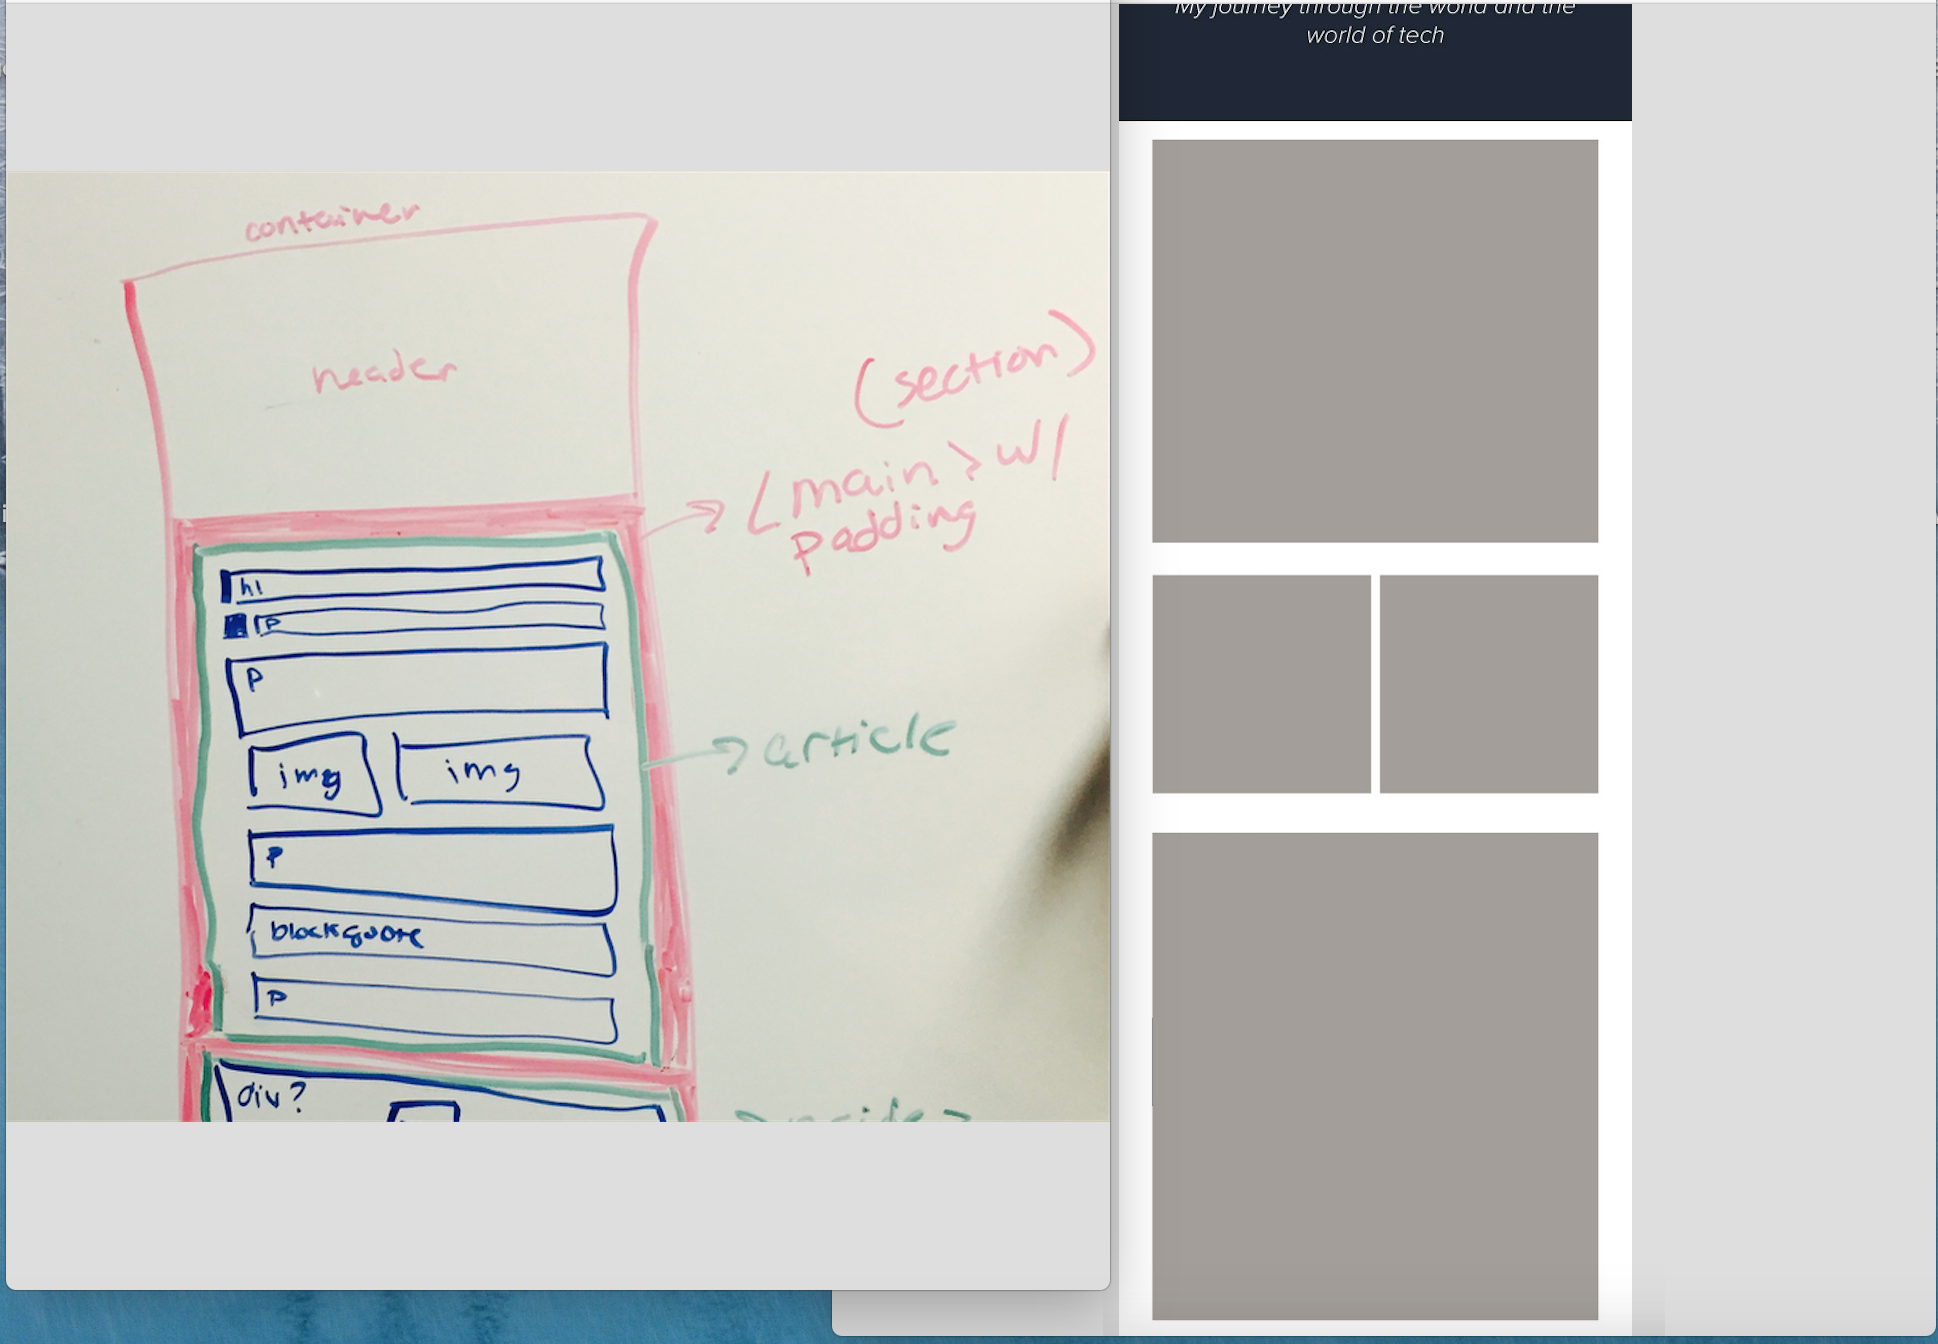 container
header
(section)
<main> w/
padding
h1
P
P
img
img
article
P
blockquote
P
div?
My journey through the world and the
world of tech